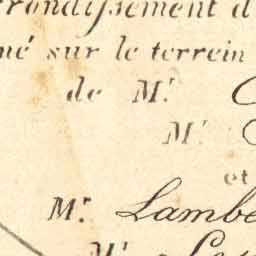 rondissement d
né sur le terrein
de Mr.
Mr.
et
Mr. Lambe
Mr.